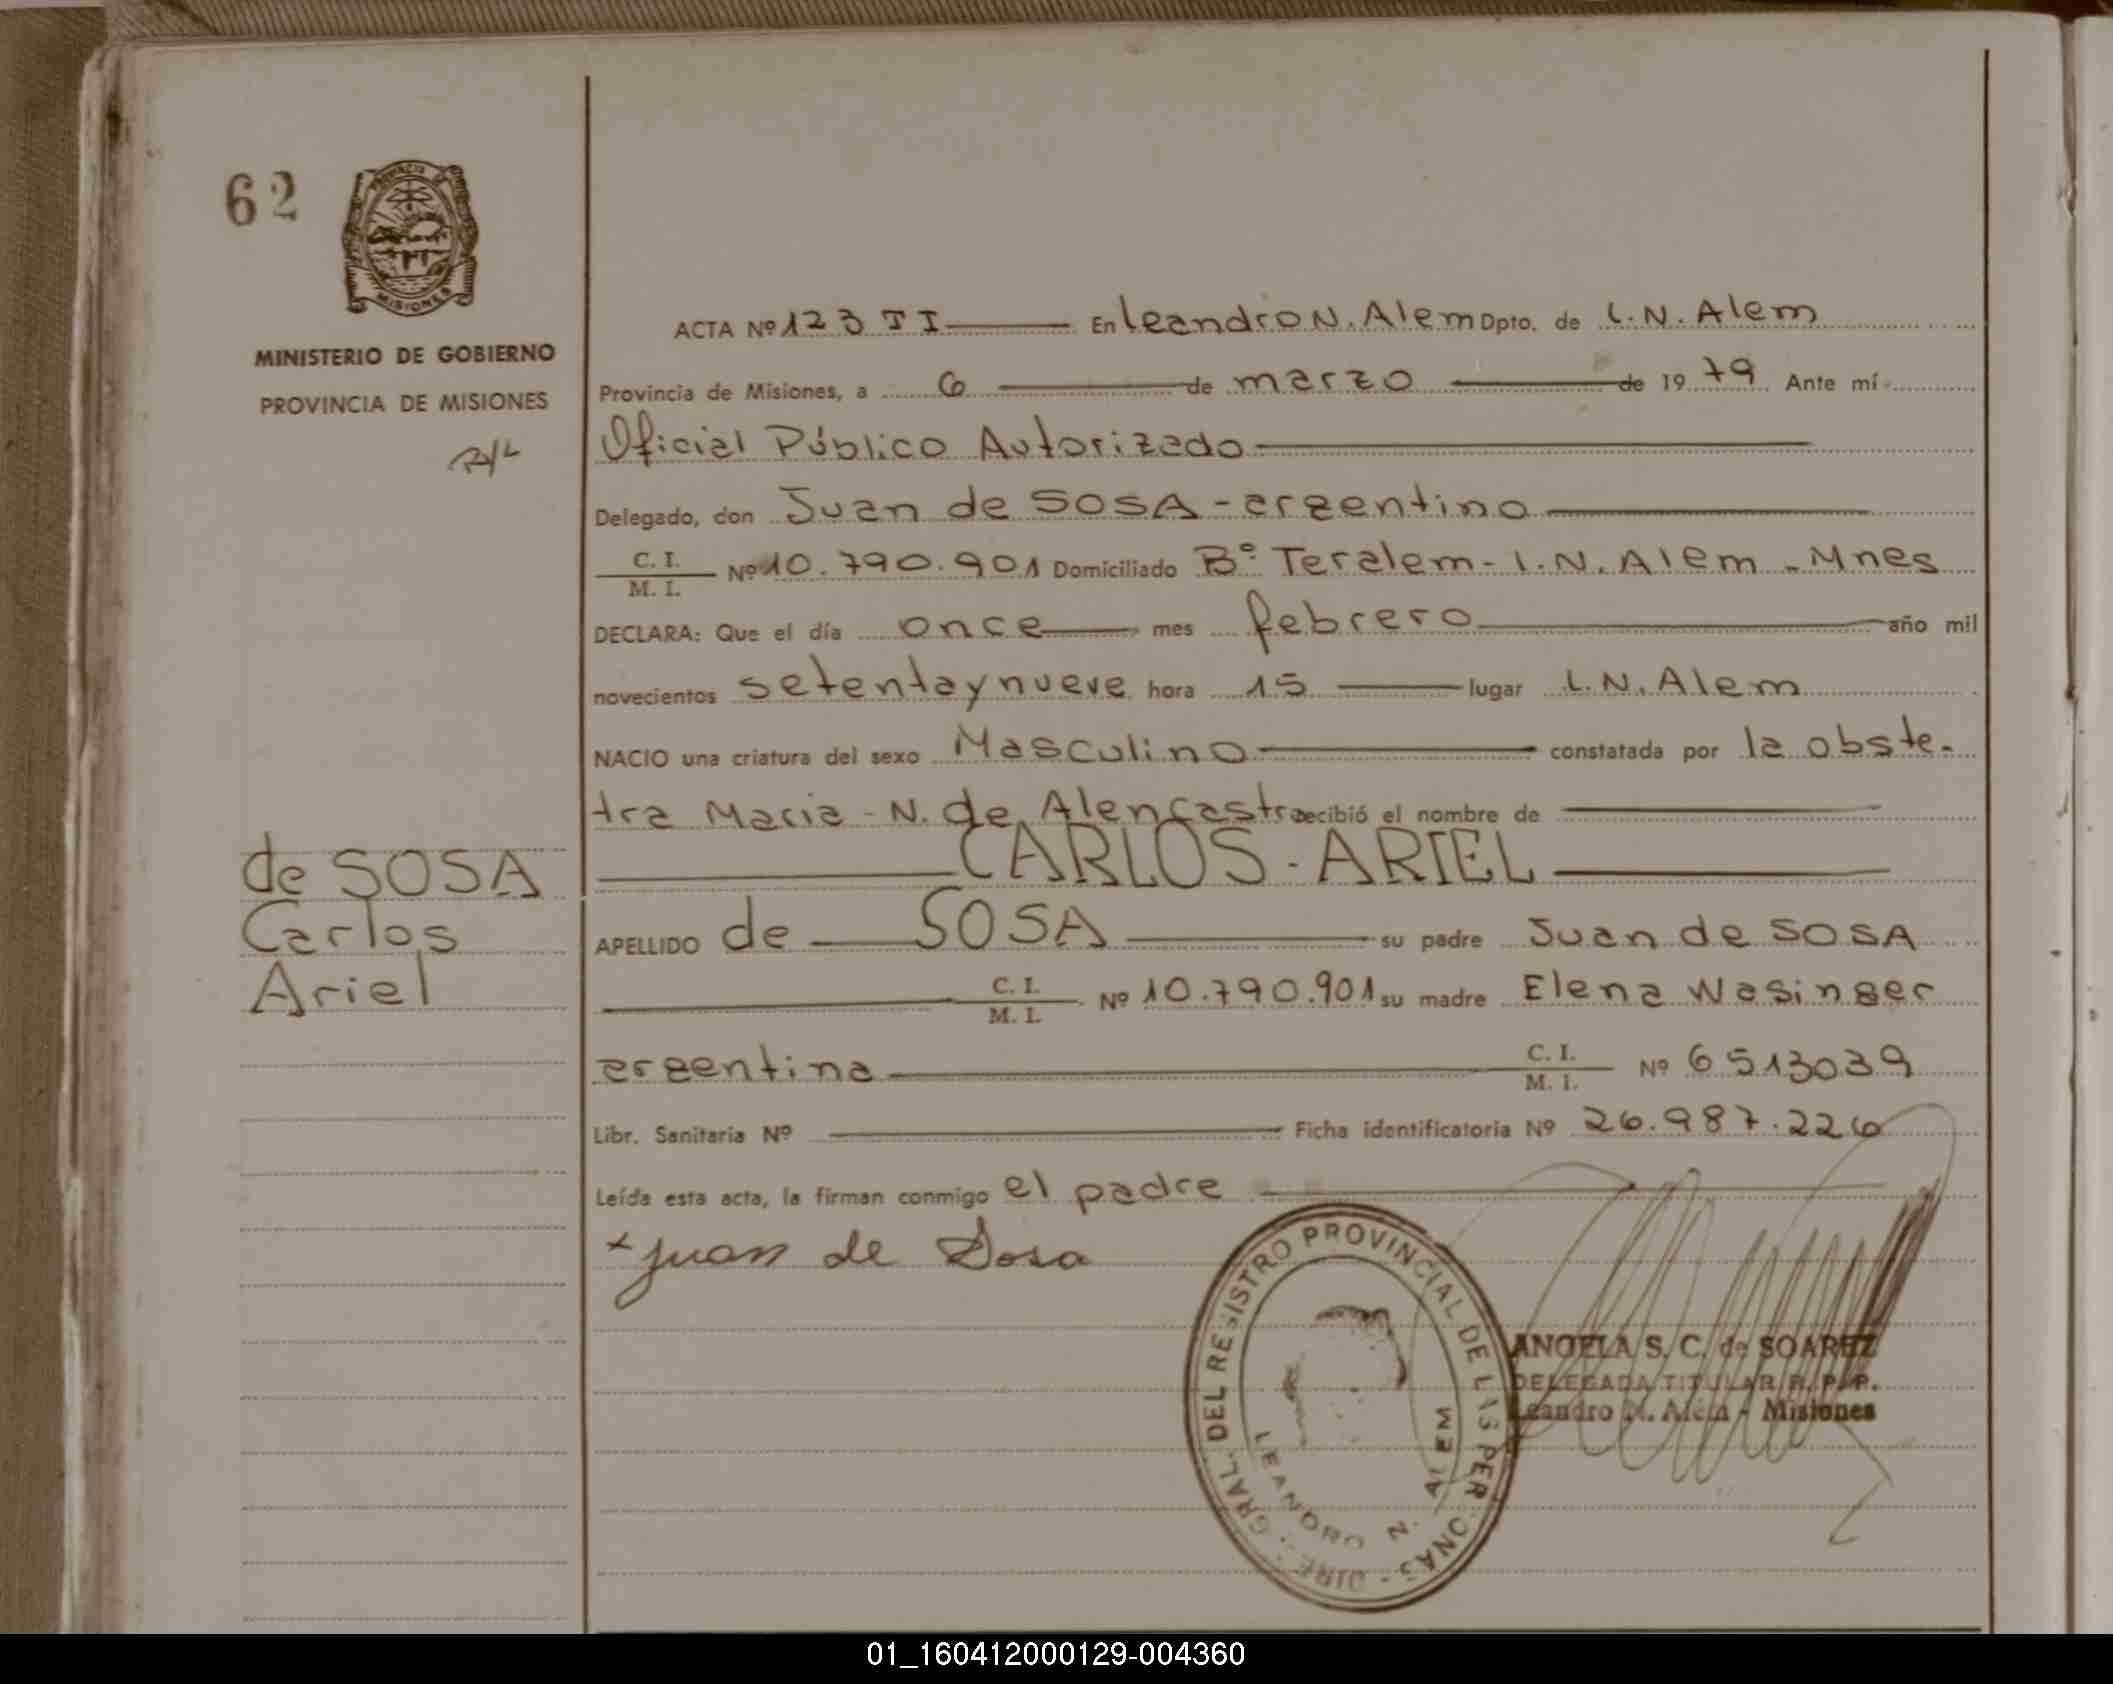 62
PROVINCIA DE
MISIONES
MINISTERIO DE GOBIERNO
PROVINCIA DE MISIONES
ACTA Nº 123 T I En Leandro N. Alem Dpto. de L.N. Alem
Provincia de Misiones, a 6 de marzo de 1979 Ante mí
Oficial Público Autorizado
Delegado, don Juan de SOSA - argentino
C. I.
M. I.
Nº 10.790.901 Domiciliado Bº Teralem - L.N. Alem - Mnes
DECLARA: Que el día once mes febrero año mil
novecientos setenta y nueve hora 15 lugar L.N. Alem
NACIO una criatura del sexo Masculino constatada por la obste-
tra Maria - N. de Alencastro recibió el nombre de
CARLOS - ARIEL
de SOSA
Carlos
Ariel
APELLIDO de SOSA su padre Juan de SOSA
C. I.
M. I.
Nº 10.790.901 su madre Elena Wasinger
argentina C. I.
M. I.
Nº 6513039
Libr. Sanitaria Nº Ficha identificatoria Nº 26.987.226
Leída esta acta, la firman conmigo el padre
x Juan de Sosa
DIRE - GRAL. DEL REGISTRO PROVINCIAL DE LAS PERSONAS -
LEANDRO N. ALEM
ANGELA S. C. de SOAREZ
DELEGADA TITULAR R. P. P.
Leandro N. Alem - Misiones
01_160412000129-004360